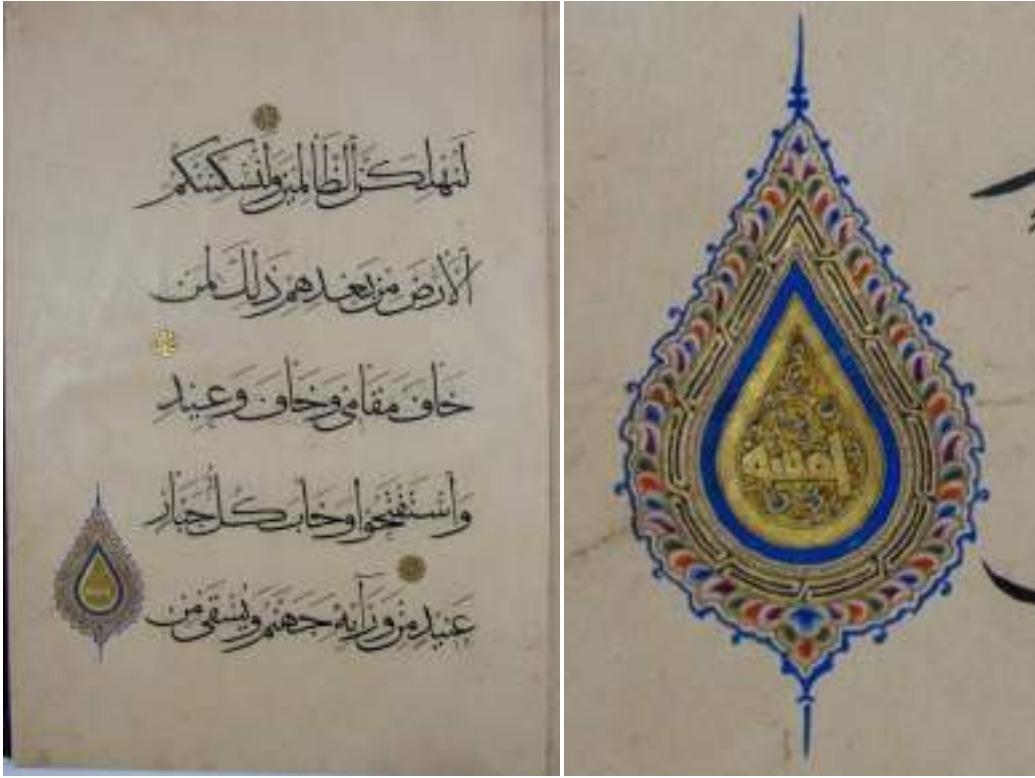 لنهلكن الظالمين ولنسكننكم
الأرض من بعدهم ذلك لمن
خاف مقامي وخاف وعيد
واستفتحوا وخاب كل جبار
عنيد من ورائه جهنم ويسقى من